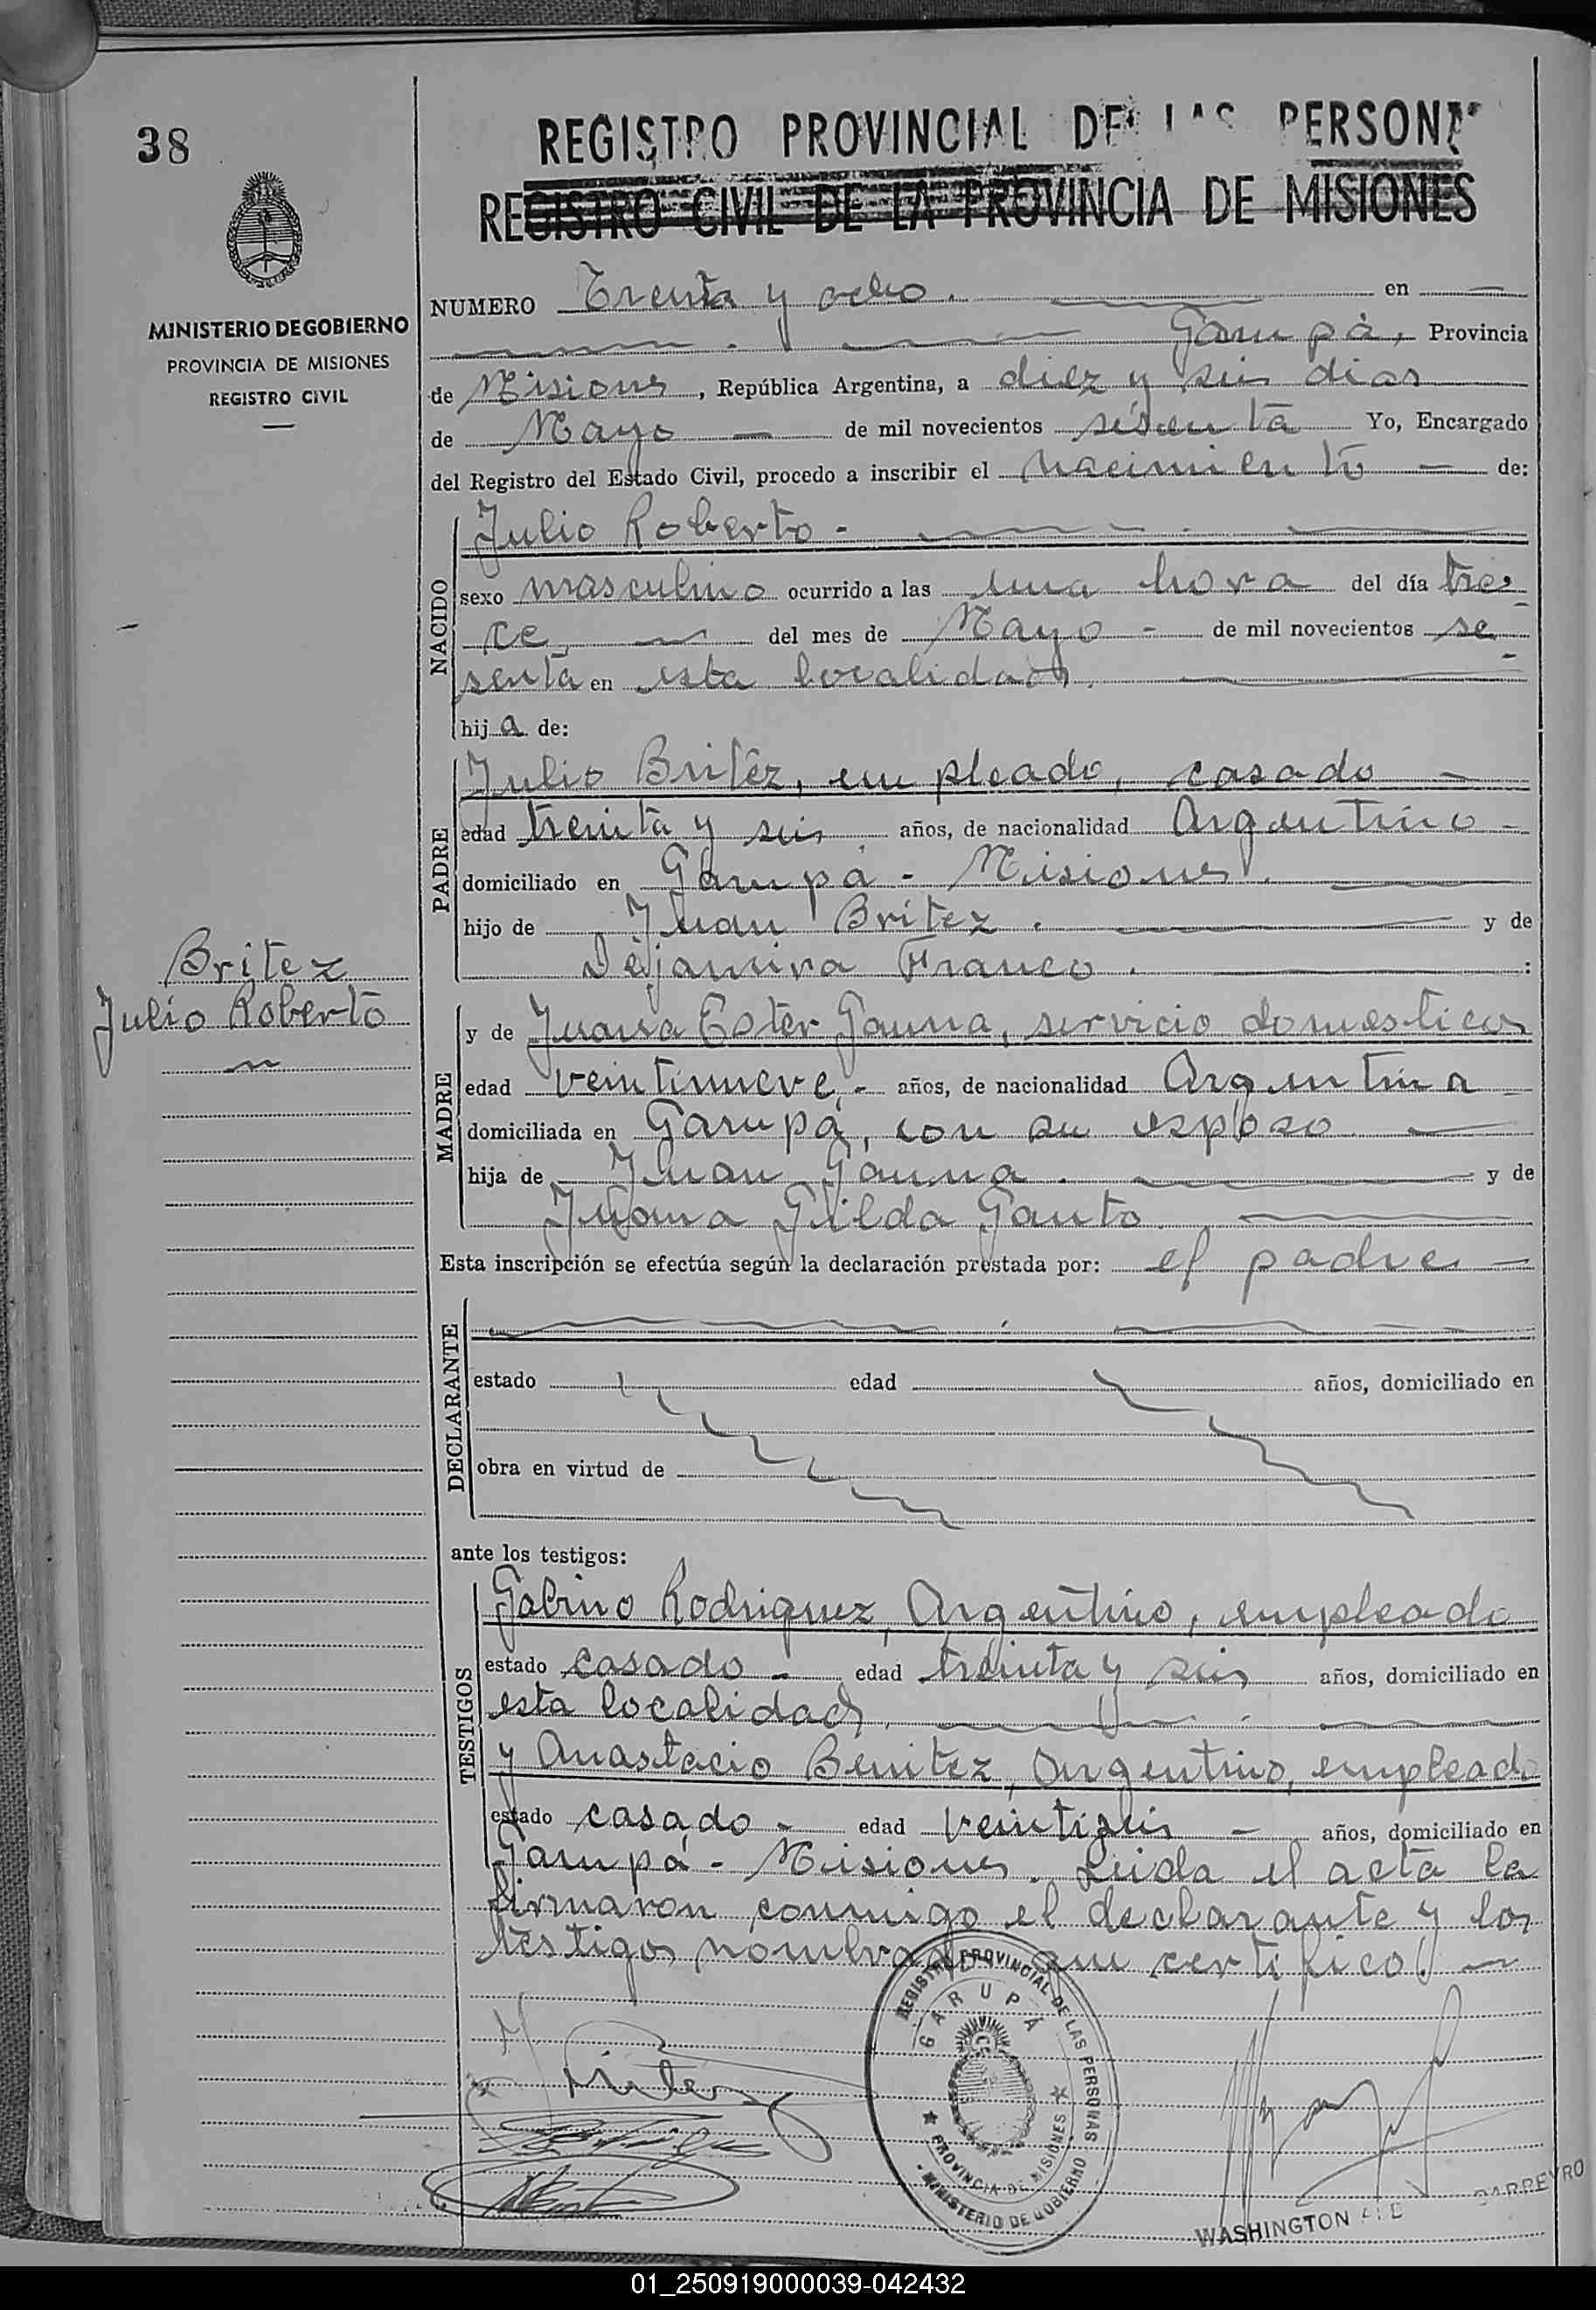 38
MINISTERIO DE GOBIERNO
PROVINCIA DE MISIONES
REGISTRO CIVIL
REGISTRO PROVINCIAL DE LAS PERSONAS
REGISTRO CIVIL DE LA PROVINCIA DE MISIONES
NUMERO Treinta y ocho. en
Garupá, Provincia
de Misiones, República Argentina, a diez y seis dias
de Mayo de mil novecientos sesenta Yo, Encargado
del Registro del Estado Civil, procedo a inscribir el nacimiento de:
NACIDO
Julio Roberto -
sexo masculino ocurrido a las una hora del día tre-
ce, del mes de Mayo - de mil novecientos se-
senta en esta localidad.
hija de:
PADRE
Julio Britez, empleado, casado
edad treinta y seis años, de nacionalidad Argentino -
domiciliado en Garupá - Misiones.
hijo de Juan Britez. y de
Dejanira Franco. :
Britez
Julio Roberto
MADRE
y de Juana Ester Gauna, servicio domesticos
edad veintinueve, - años, de nacionalidad Argentina
domiciliada en Garupá, con su esposo
hija de Juan Gauna. y de
Juana Gilda Gauto
Esta inscripción se efectúa según la declaración prestada por: el padre
DECLARANTE
estado edad años, domiciliado en
obra en virtud de
ante los testigos:
TESTIGOS
Gabino Rodriguez, Argentino, empleado
estado casado - edad treinta y seis años, domiciliado en
esta localidad.
y Anastacio Benitez, argentino, empleado
estado casado - edad veintiseis - años, domiciliado en
Garupá - Misiones. Leida el acta la
firmaron conmigo el declarante y los
testigos nombrados que certifico.
REGISTRO PROVINCIAL DE LAS PERSONAS
GARUPÁ
PROVINCIA DE MISIONES
MINISTERIO DE GOBIERNO
WASHINGTON BARREYRO
01_250919000039-042432